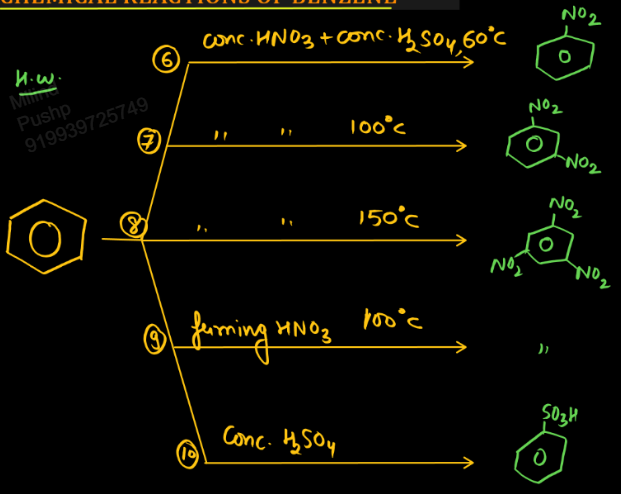 CHEMICAL REACTIONS OF BENZENE
H.W.
Pushp
919939725749
⑥ conc. HNO3 + conc. H2SO4, 60°c
NO2
⑦ " " 100°c
NO2
NO2
⑧ " " 150°c
NO2
NO2 NO2
⑨ fuming HNO3 100°c
"
⑩ Conc. H2SO4
SO3H